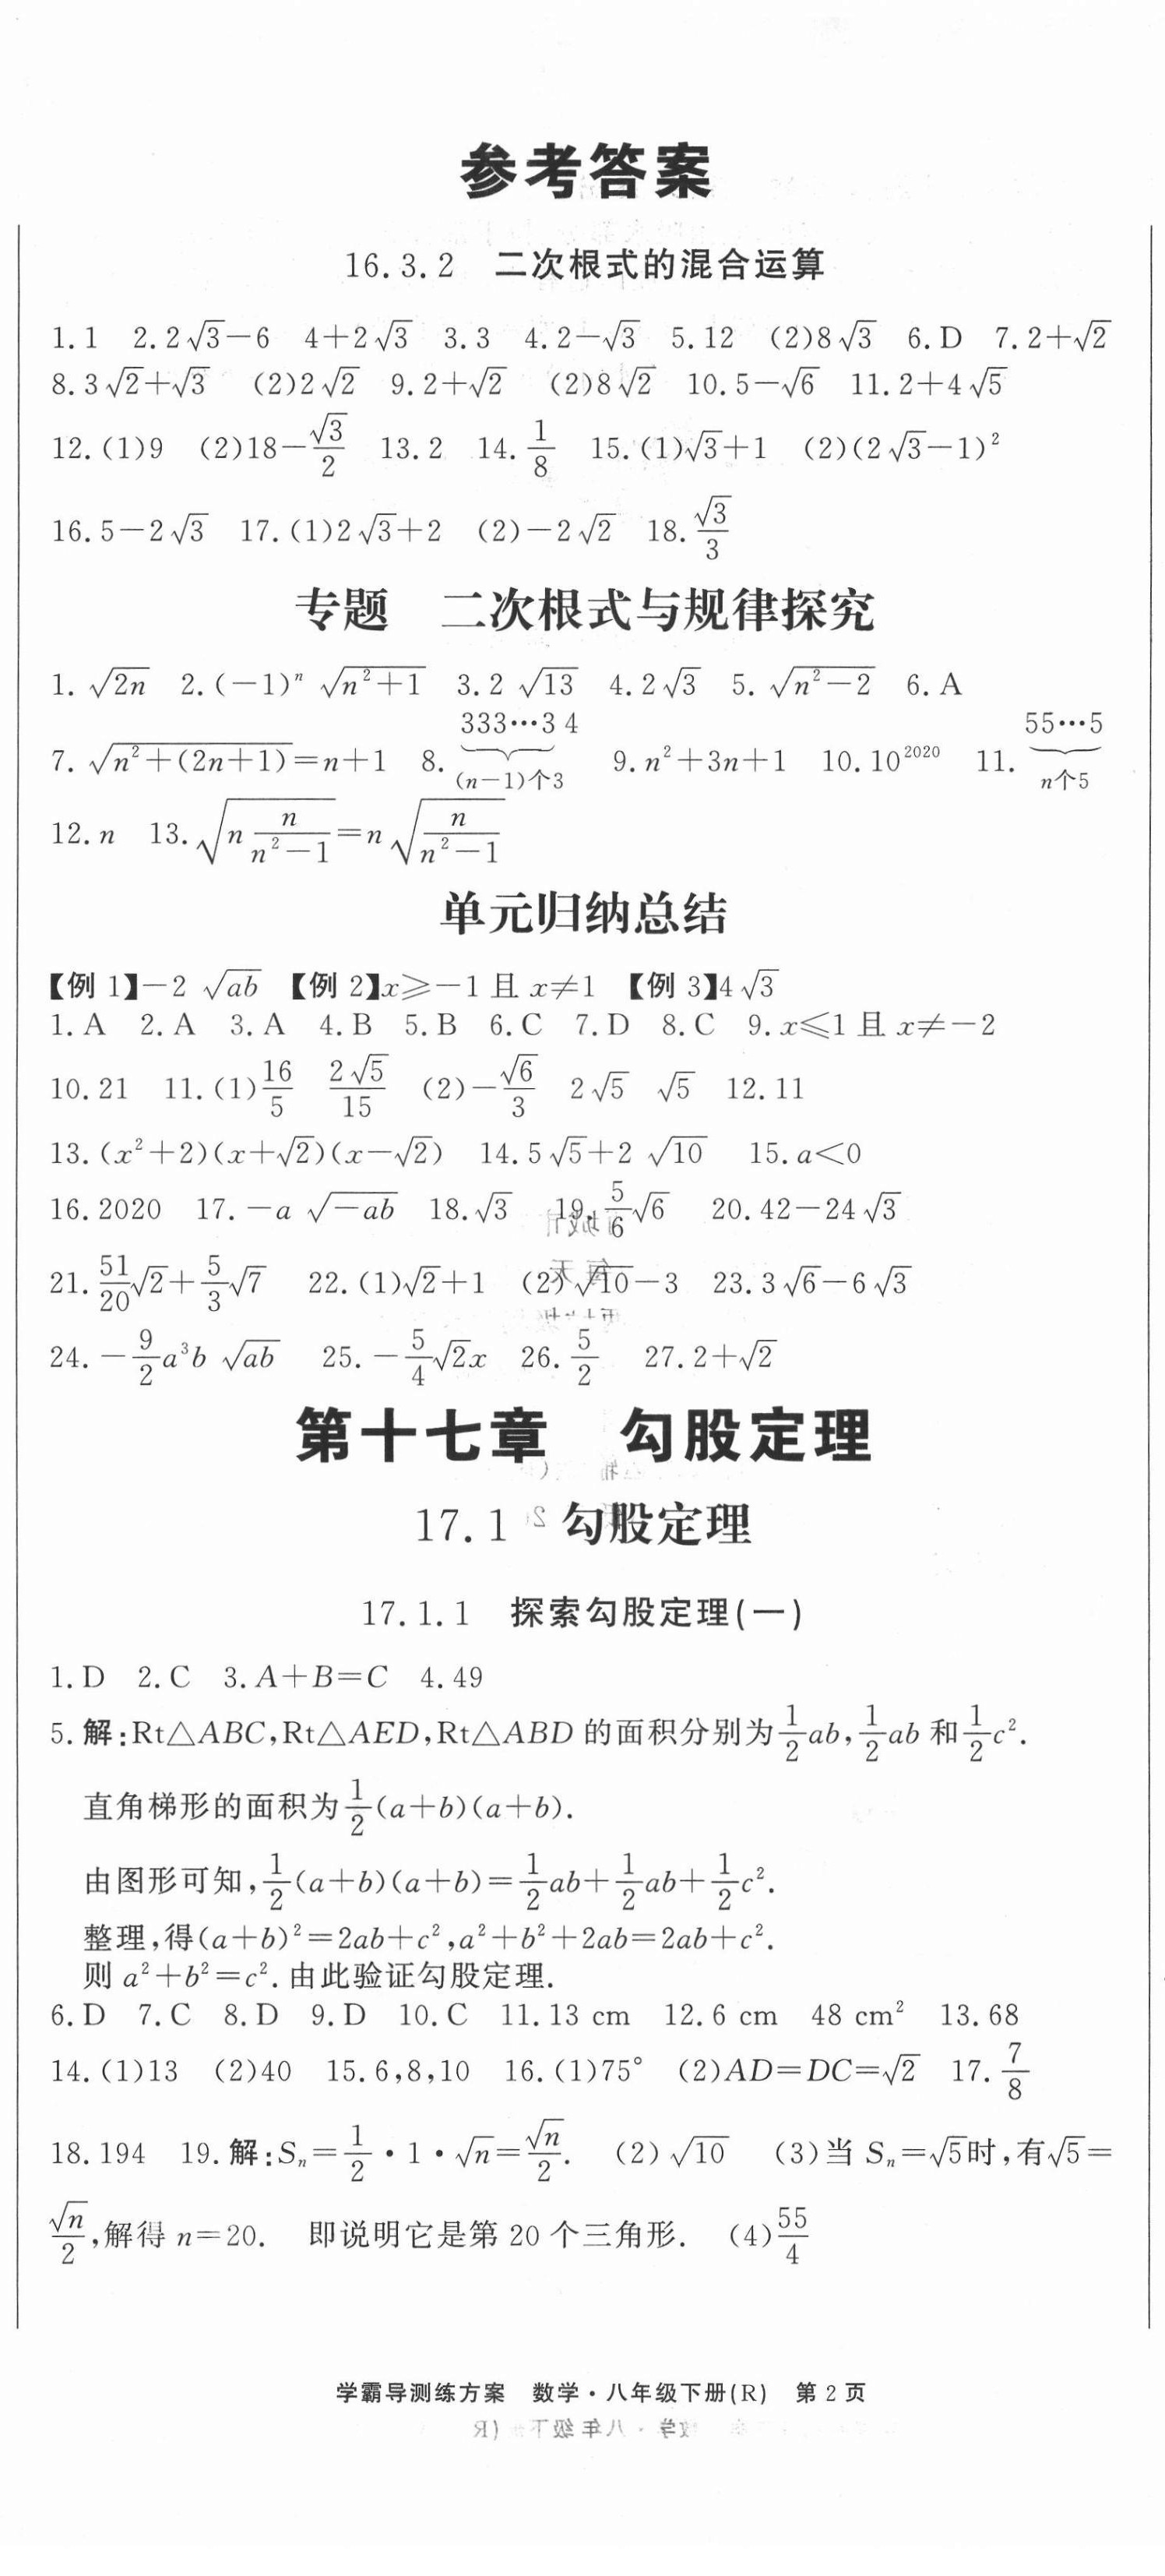 参考答案
16.3.2 二次根式的混合运算
1.1 2.2√3－6 4＋2√3 3.3 4.2－√3 5.12 (2)8√3 6.D 7.2＋√2
8.3√2＋√3 (2)2√2 9.2＋√2 (2)8√2 10.5－√6 11.2＋4√5
12.(1)9 (2)18－√3/2 13.2 14.1/8 15.(1)√3＋1 (2)(2√3－1)²
16.5－2√3 17.(1)2√3＋2 (2)－2√2 18.√3/3
专题 二次根式与规律探究
1.√(2n) 2.(－1)ⁿ√(n²＋1) 3.2√13 4.2√3 5.√(n²－2) 6.A
7.√(n²＋(2n＋1))＝n＋1 8.333…34 (n－1)个3 9.n²＋3n＋1 10.10²⁰²⁰ 11.55…5 n个5
12.n 13.√(n n/(n²－1))＝n√(n/(n²－1))
单元归纳总结
【例1】－2√(ab) 【例2】x≥－1且x≠1 【例3】4√3
1.A 2.A 3.A 4.B 5.B 6.C 7.D 8.C 9.x≤1且x≠－2
10.21 11.(1)16/5 2√5/15 (2)－√6/3 2√5 √5 12.11
13.(x²＋2)(x＋√2)(x－√2) 14.5√5＋2√10 15.a＜0
16.2020 17.－a√(－ab) 18.√3 19.5/6√6 20.42－24√3
21.51/20√2＋5/3√7 22.(1)√2＋1 (2)√10－3 23.3√6－6√3
24.－9/2a³b√(ab) 25.－5/4√2x 26.5/2 27.2＋√2
第十七章 勾股定理
17.1 勾股定理
17.1.1 探索勾股定理(一)
1.D 2.C 3.A＋B＝C 4.49
5.解:Rt△ABC,Rt△AED,Rt△ABD的面积分别为1/2ab,1/2ab和1/2c².
直角梯形的面积为1/2(a＋b)(a＋b).
由图形可知,1/2(a＋b)(a＋b)＝1/2ab＋1/2ab＋1/2c².
整理,得(a＋b)²＝2ab＋c²,a²＋b²＋2ab＝2ab＋c².
则a²＋b²＝c².由此验证勾股定理.
6.D 7.C 8.D 9.D 10.C 11.13 cm 12.6 cm 48 cm² 13.68
14.(1)13 (2)40 15.6,8,10 16.(1)75° (2)AD＝DC＝√2 17.7/8
18.194 19.解:Sₙ＝1/2·1·√n＝√n/2. (2)√10 (3)当Sₙ＝√5时,有√5＝
√n/2,解得n＝20. 即说明它是第20个三角形. (4)55/4
学霸导测练方案 数学·八年级下册(R) 第2页